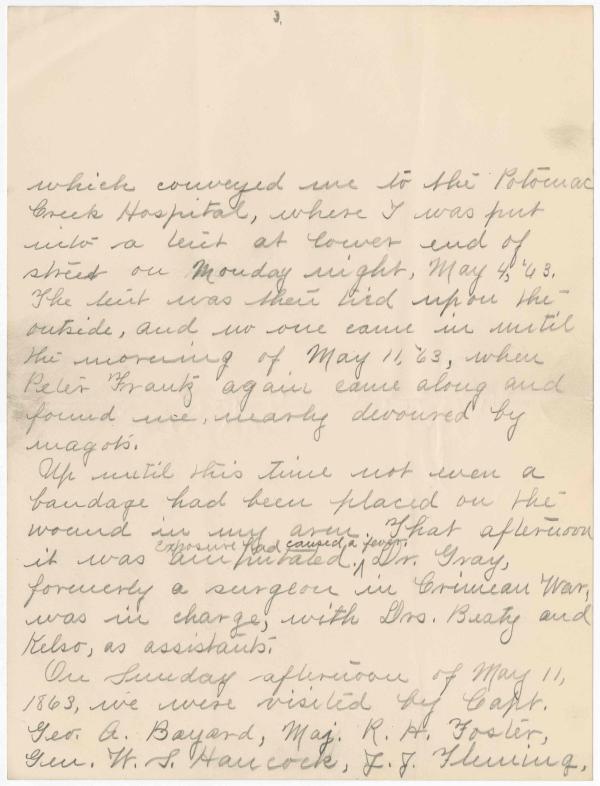 3.
which conveyed me to the Potomac
Creek Hospital, where I was put
into a tent at lower end of
street on Monday night, May 4, '63.
The tent was then tied upon the
outside, and no one came in until
the morning of May 11, '63, when
Peter Frantz again came along and
found me, nearly devoured by
magots.
Up until this time not even a
bandage had been placed on the
wound in my arm. That afternoon
exposure had caused a fever.
it was amputated. Dr. Gray,
formerly a surgeon in Crimean War,
was in charge, with Drs. Beaty and
Kelso, as assistants.
On Sunday afternoon of May 11,
1863, we were visited by Capt.
Geo. A. Bayard, Maj. R. H. Foster,
Gen. W. S. Hancock, J. J. Fleming,